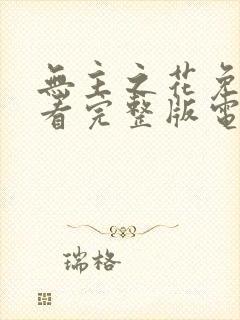 無主之花免
看完整版電
瑞格